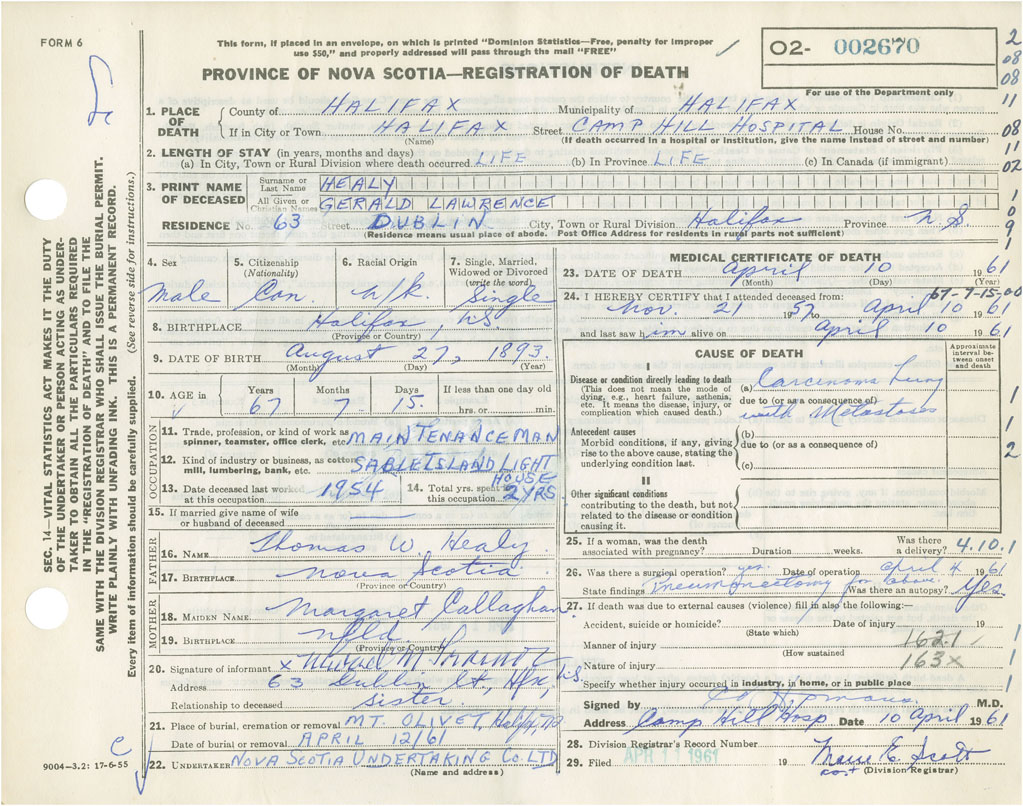 FORM 6
This form, if placed in an envelope, on which is printed "Dominion Statistics—Free, penalty for improper
use $50," and properly addressed will pass through the mail "FREE"
O2- 002670
For use of the Department only
PROVINCE OF NOVA SCOTIA—REGISTRATION OF DEATH
1. PLACE OF DEATH
County of HALIFAX Municipality of HALIFAX
If in City or Town HALIFAX Street CAMP HILL HOSPITAL House No.
(Name) (If death occurred in a hospital or institution, give the name instead of street and number)
2. LENGTH OF STAY (in years, months and days)
(a) In City, Town or Rural Division where death occurred LIFE (b) In Province LIFE (c) In Canada (if immigrant)
3. PRINT NAME OF DECEASED
Surname or Last Name HEALY
All Given or Christian Names GERALD LAWRENCE
RESIDENCE No. 63 Street DUBLIN City, Town or Rural Division Halifax Province N.S.
(Residence means usual place of abode. Post Office Address for residents in rural parts not sufficient)
4. Sex 5. Citizenship (Nationality) 6. Racial Origin 7. Single, Married, Widowed or Divorced (write the word)
Male Can. w/k. Single
8. BIRTHPLACE Halifax, NS
(Province or Country)
9. DATE OF BIRTH August 27, 1893.
(Month) (Day) (Year)
10. AGE in Years Months Days If less than one day old
67 7 15. hrs. or min.
OCCUPATION
11. Trade, profession, or kind of work as spinner, teamster, office clerk, etc. MAINTENANCE MAN
12. Kind of industry or business, as cotton mill, lumbering, bank, etc. SABLE ISLAND LIGHT HOUSE
13. Date deceased last worked at this occupation 1954 14. Total yrs. spent in this occupation 2 YRS
15. If married give name of wife or husband of deceased
FATHER
16. NAME Thomas W. Healy
17. BIRTHPLACE Nova Scotia
(Province or Country)
MOTHER
18. MAIDEN NAME Margaret Callaghan
19. BIRTHPLACE Nfld.
(Province or Country)
20. Signature of informant x
Address 63 Dublin St., Hfx, N.S.
Relationship to deceased sister
21. Place of burial, cremation or removal MT. OLIVET, Halifax, NS
Date of burial or removal APRIL 12/61
22. UNDERTAKER NOVA SCOTIA UNDERTAKING Co. LTD
(Name and address)
MEDICAL CERTIFICATE OF DEATH
23. DATE OF DEATH April 10 1961
(Month) (Day) (Year)
67-7-15-00
24. I HEREBY CERTIFY that I attended deceased from:
Nov. 21 1957 to April 10 1961
and last saw him alive on April 10 1961
CAUSE OF DEATH
Approximate interval between onset and death
I
Disease or condition directly leading to death
(This does not mean the mode of dying, e.g., heart failure, asthenia, etc. It means the disease, injury, or complication which caused death.)
(a) Carcinoma Lung
due to (or as a consequence of)
with Metastasis
Antecedent causes
Morbid conditions, if any, giving rise to the above cause, stating the underlying condition last.
(b)
due to (or as a consequence of)
(c)
II
Other significant conditions
contributing to the death, but not related to the disease or condition causing it.
25. If a woman, was the death associated with pregnancy? Duration weeks. Was there a delivery? 4.10.1
26. Was there a surgical operation? yes. Date of operation April 4 1961
State findings Pneumonectomy for above. Was there an autopsy? Yes
27. If death was due to external causes (violence) fill in also the following:—
Accident, suicide or homicide? Date of injury 19
(State which)
Manner of injury 162.1
(How sustained)
Nature of injury 163x
Specify whether injury occurred in industry, in home, or in public place
Signed by M.D.
Address Camp Hill Hosp Date 10 April 1961
28. Division Registrar's Record Number
29. Filed APR 11 1961 19 E. Scott
(Division Registrar)
SEC. 14—VITAL STATISTICS ACT MAKES IT THE DUTY
OF THE UNDERTAKER OR PERSON ACTING AS UNDER-
TAKER TO OBTAIN ALL THE PARTICULARS REQUIRED
IN THE "REGISTRATION OF DEATH" AND TO FILE THE
SAME WITH THE DIVISION REGISTRAR WHO SHALL ISSUE THE BURIAL PERMIT.
WRITE PLAINLY WITH UNFADING INK. THIS IS A PERMANENT RECORD.
Every item of information should be carefully supplied. (See reverse side for instructions.)
9004—3.2: 17-6-55
2
08
08
11
08
11
02
1
0
0
9
1
1
1
2
1
1
1